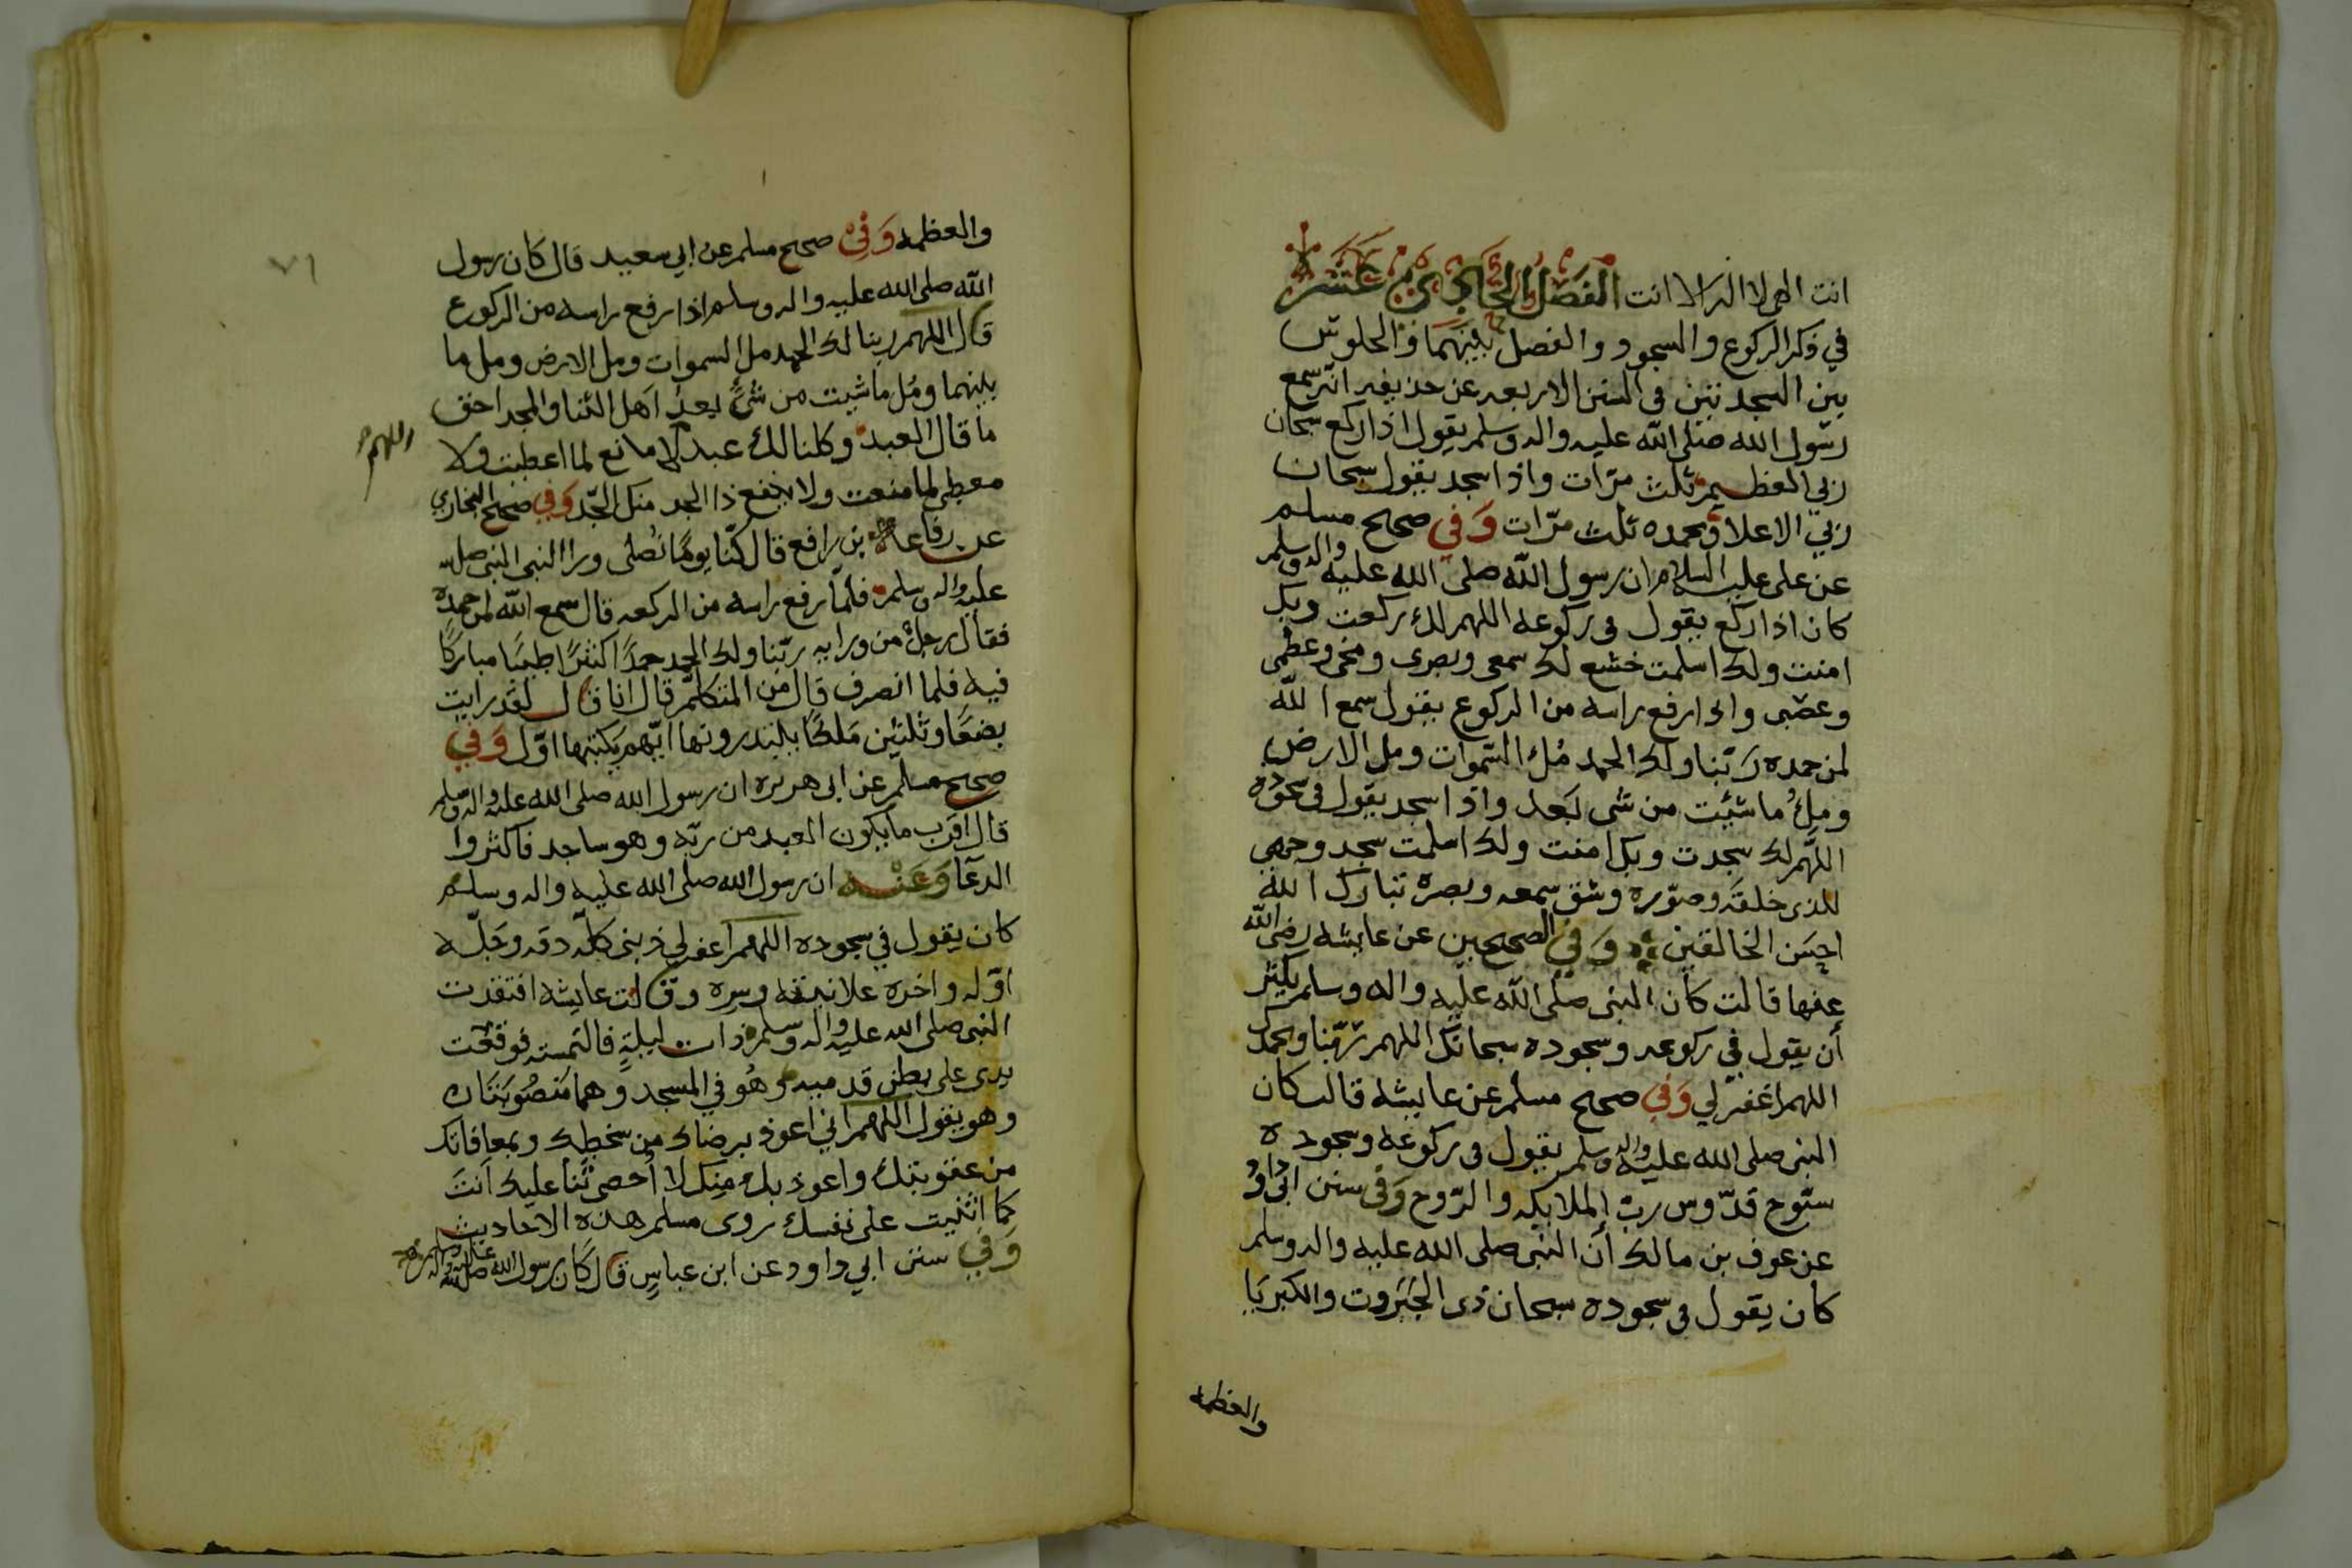 انت الهي لا اله الا انت الفصل الحادي عشر
في ذكر الركوع والسجود والفصل بينهما والجلوس
بين السجدتين في السنن الاربعه عن حذيفه انه سمع
رسول الله صلى الله عليه واله وسلم يقول اذا ركع سبحان
ربي العظيم ثلث مرّات واذا سجد يقول سبحان
ربي الاعلا وبحمده ثلث مرّات وَفي صحيح مسلم
عن علي عليه السلام ان رسول الله صلى الله عليه واله وسلم
كان اذا ركع يقول في ركوعه اللهم لك ركعت وبك
امنت ولك اسلمت خشع لك سمعي وبصري ومخي وعظمي
وعصبي واذا رفع راسه من الركوع يقول سمع الله
لمن حمده رَبّنا ولك الحمد مُل السّموات ومل الارض
ومِلُ ما شئت من شي بَعد واذا سجد يقول في سجوده
اللهّم لك سجدت وبك امنت ولك اسلمت سجد وجهي
للذي خلقه وصوّره وشق سمعه وبصره تبارك الله
احسَن الخالقين وَفي الصحيحين عن عايشه رضي الله
عنها قالت كان النبي صلى الله عليه واله وسلم يكثر
أن يقول في ركوعه وسجوده سبحانك اللهم رَبّنا وبحمدك
اللهم اغفر لي وَفي صحيح مسلم عن عايشه قالت كان
النبي صلى الله عليه واله وسلم يقول في ركوعه وسجوده
سبّوح قدّوس ربّ الملايكه والرّوح وَفي سنن ابي داود
عن عوف بن مالك أن النبي صلى الله عليه واله وسلم
كان يقول في سجوده سبحان ذي الجبَروت والكبريَا
والعظمه
والعظمه وَفي صحيح مسلم عن ابي سعيد قال كان رسول
الله صلى الله عليه واله وسلم اذا رفع راسه من الركوع
قال اللهم ربنا لك الحمد مل السموات ومل الارض ومل ما
بينهما ومُل ما شيت من شيً بعدُ اَهل الثنا والمجد احق
ما قال العبد وكلنا لك عبد لا مانع لما اعطيت ولا
اللهم
معطي لما منعت ولا ينفع ذا الجد منك الجّد وَفي صحيح البخاري
عن رفاعة بن رافع قال كنّا يومًا نُصلي ورا النبي النبي صلى الله
عليه واله وسلم فلمّا رفع راسه من الركعه قال سمع الله لمن حمده
فقال رجلٌ من ورايه ربّنا ولك الحمد حمدًا كثيرًا طيبًا مباركًا
فيه فلما انصرف قال من المتكلّم قال انا قال لقد رايت
بضعًا وثلثين مَلكًا يبتدرونها ايّهم يَكتبها اوّل وَفي
صحيح مسلم عن ابي هريره ان رسول الله صلى الله عليه واله وسلم
قال اقرب ما يكون العبد من ربّه وهو ساجد فاكثروا
الدعآ وَعَنْه ان رسول الله صلى الله عليه واله وسلم
كان يقول في سجوده اللهم اغفر لي ذبني كلّه دقه وجلّه
اوّله واخره علانيته وسره وقالت عايشه افتقدت
النبي صلى الله عليه واله وسلم ذات ليلةٍ فالتمسته فوقعت
يدي على بطن قدميه وهُو في المسجد وهما مَنصُوبَتان
وهو يقول اللهم اني اعوذ برضاك من سخطك وبمعافاتك
من عقوبتك واعوذ بك منك لا أُحصي ثَنا عليك انتَ
كما اثنيت على نفسك روى مسلم هذه الاحاديث
وَفي سنن ابي داود عن ابن عباسٍ قال كان رسول الله صلى الله عليه واله وسلم
٧١